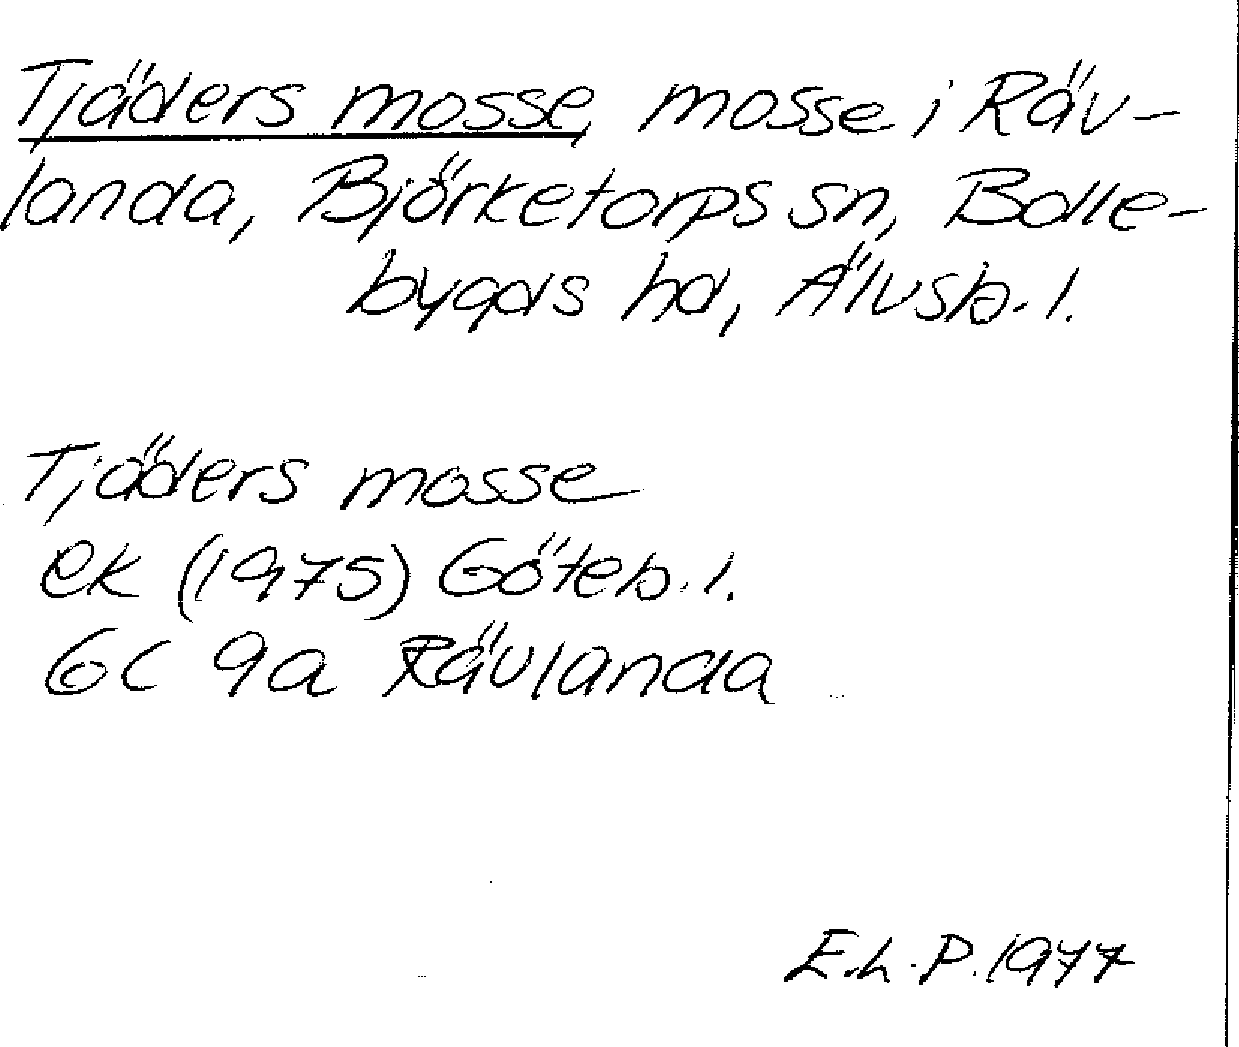 Tjäders mosse, mosse i Räv-
landa, Björketorps sn, Bolle-
bygds hd, Älvsb. l.
Tjäders mosse
ek (1975) Göteb. l.
6C 9a Rävlanda
E.L.P. 1977